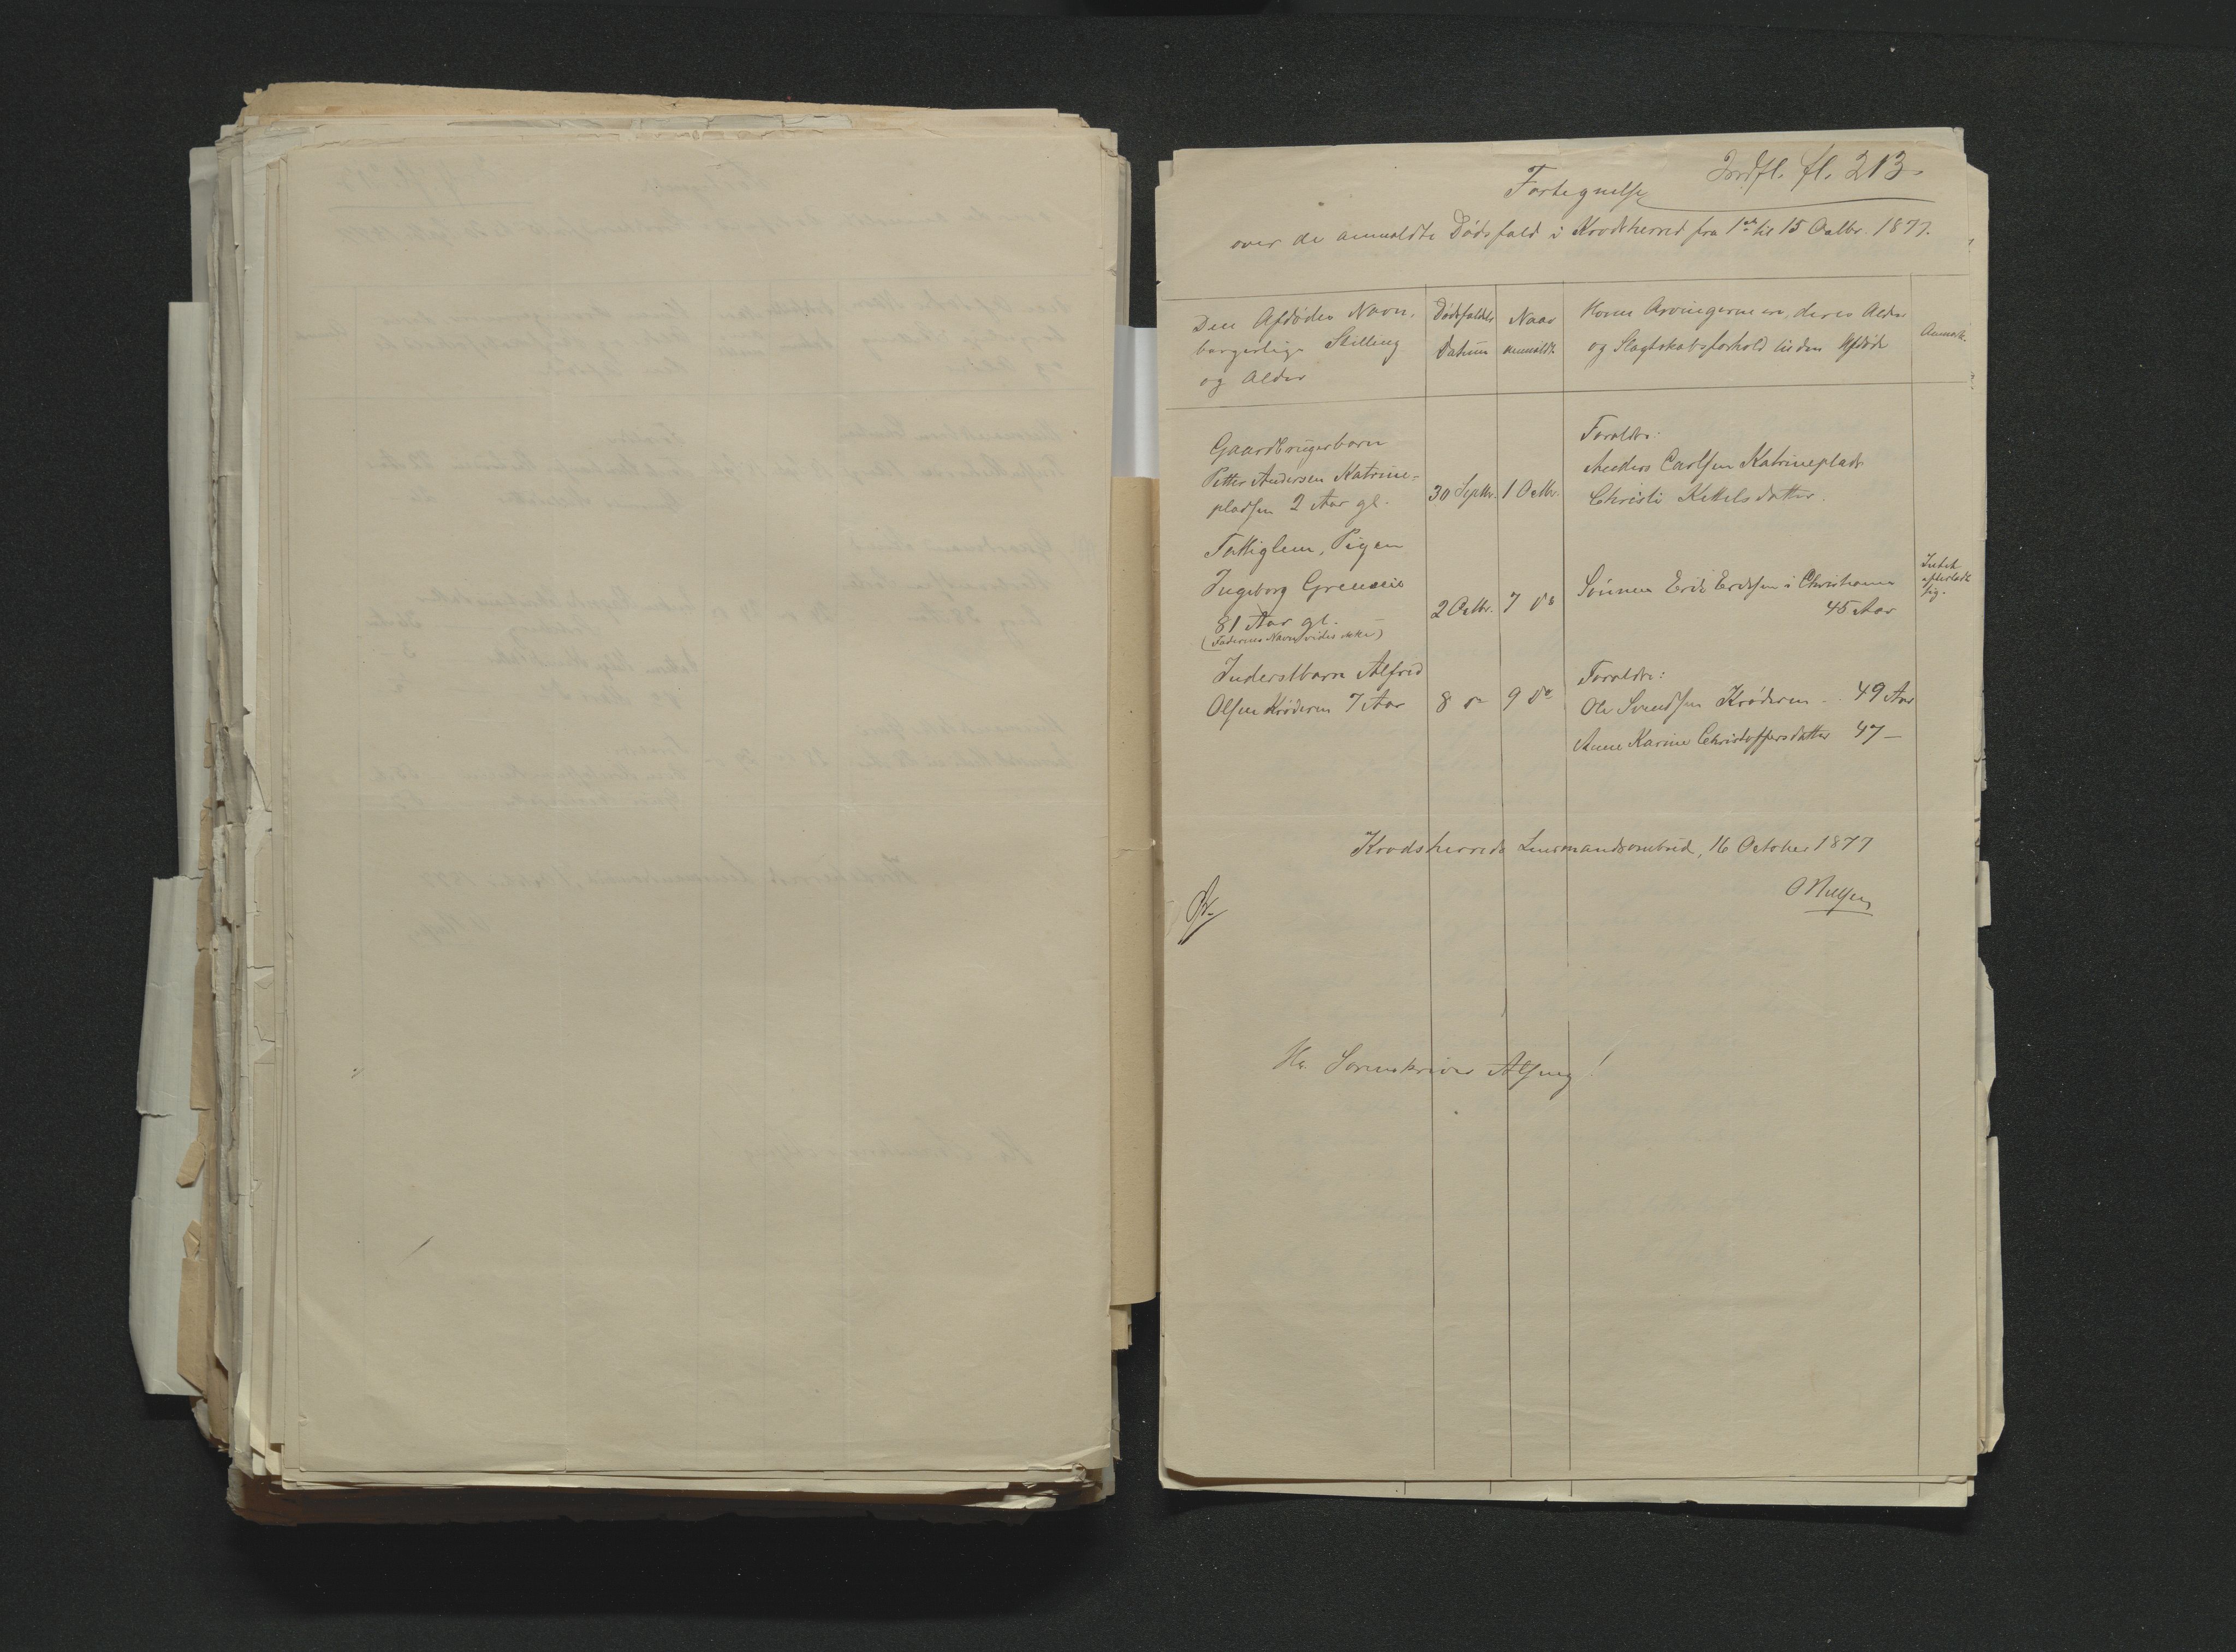 Fortegnelse
fl. 213
over de anmeldte Dødsfald i Krødsherred fra 1ste til 15 Octbr. 1877.
Den Afdødes Navn,
borgerlige Stilling
og Alder
Dødsfaldets
Datum
Naar
anmeldt
Hvem Arvingerne ere, deres Alder
og Slægtskabsforhold til den Afdøde
Anmærk.
Gaardbrugerbarn
Petter Andersen Katrine-
pladsen 2 Aar gl.
30 Septbr.
1 Octbr.
Forældre:
Anders Carlsen Katrineplads
Christi Kittelsdatter.
Fattiglem, Pigen
Ingeborg
81 Aar gl.
(Faderens Navn vides ikke)
2 Octbr.
7 do
Sønnen Erik Eriksen i Christiania
45 Aar
Intet
efterladt
sig.
Inderstbarn Alfred
Olsen Krøderen 7 Aar
8 do
9 do
Forældre:
Ole Svendsen Krøderen 49 Aar
Anne Karine Christoffersdatter 47 —
Krødsherreds Lensmandsombud, 16 October 1877
Hr. Sorenskriver !